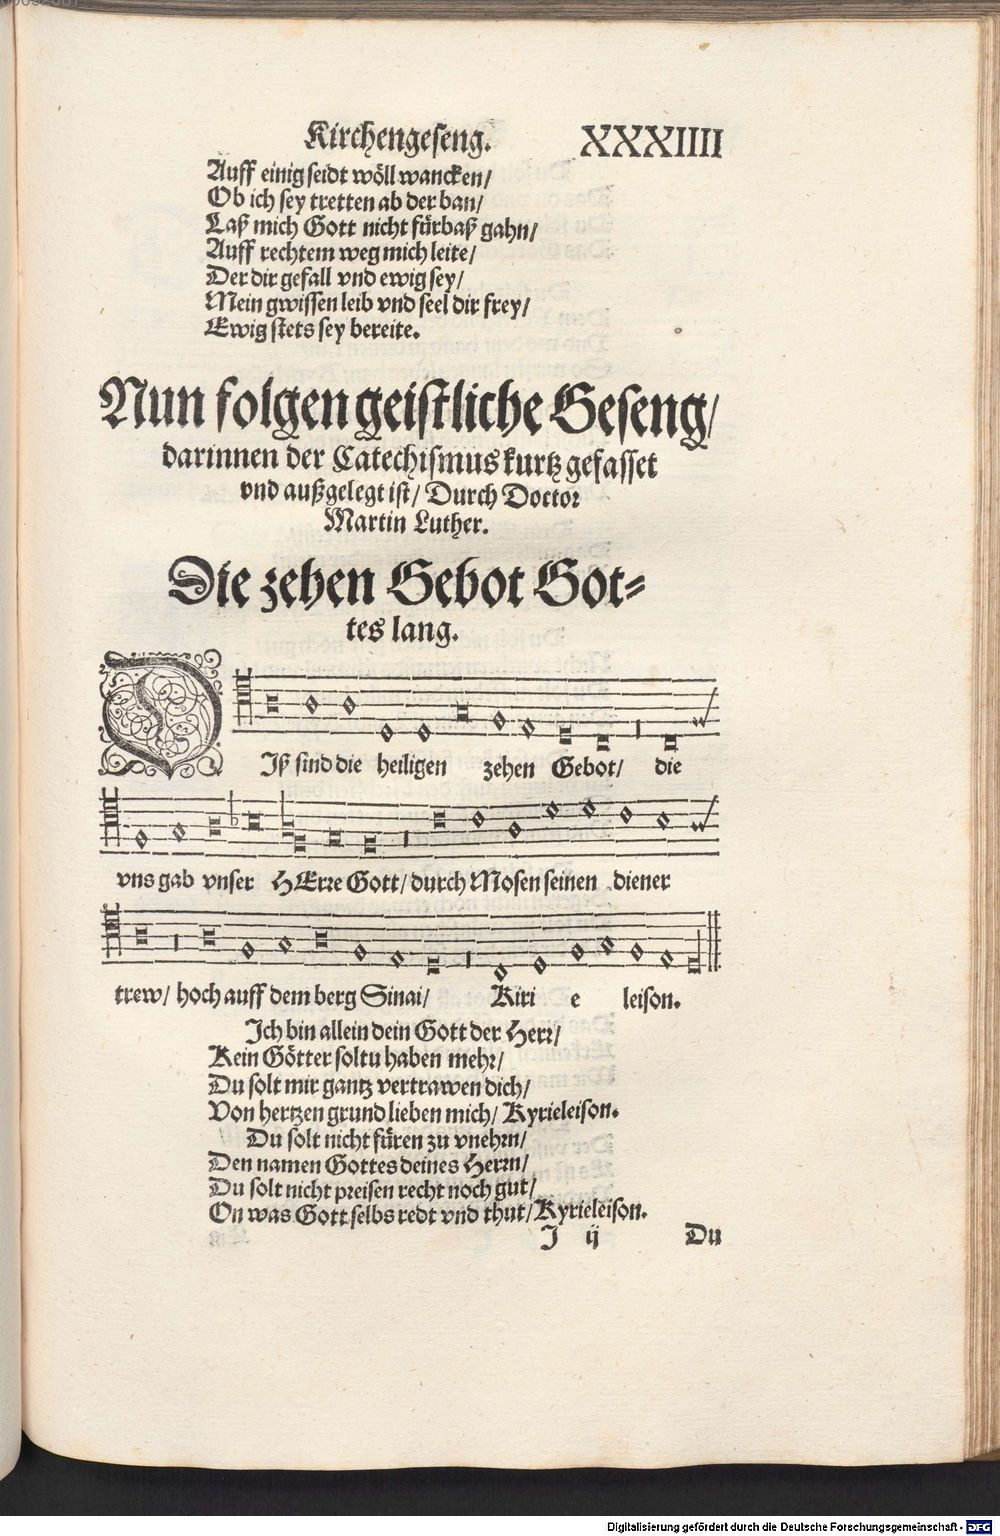 Kirchengeseng. XXXIIII
Auff einig seidt wöll wancken/
Ob ich sey tretten ab der ban/
Laß mich Gott nicht fürbaß gahn/
Auff rechtem weg mich leite/
Der dir gefall vnd ewig sey/
Mein gwissen leib vnd seel dir frey/
Ewig stets sey bereite.
Nun folgen geistliche Geseng/
darinnen der Catechismus kurtz gefasset
vnd außgelegt ist/ Durch Doctor
Martin Luther.
Die zehen Gebot Got=
tes lang.
DIß sind die heiligen zehen Gebot/ die
vns gab vnser HErre Gott/ durch Mosen seinen diener
trew/ hoch auff dem berg Sinai/ Kiri e leison.
Ich bin allein dein Gott der Herr/
Kein Götter soltu haben mehr/
Du solt mir gantz vertrawen dich/
Von hertzen grund lieben mich/ Kyrieleison.
Du solt nicht füren zu vnehrn/
Den namen Gottes deines Herrn/
Du solt nicht preisen recht noch gut/
On was Gott selbs redt vnd thut/ Kyrieleison.
J ij Du
Digitalisierung gefördert durch die Deutsche Forschungsgemeinschaft - DFG